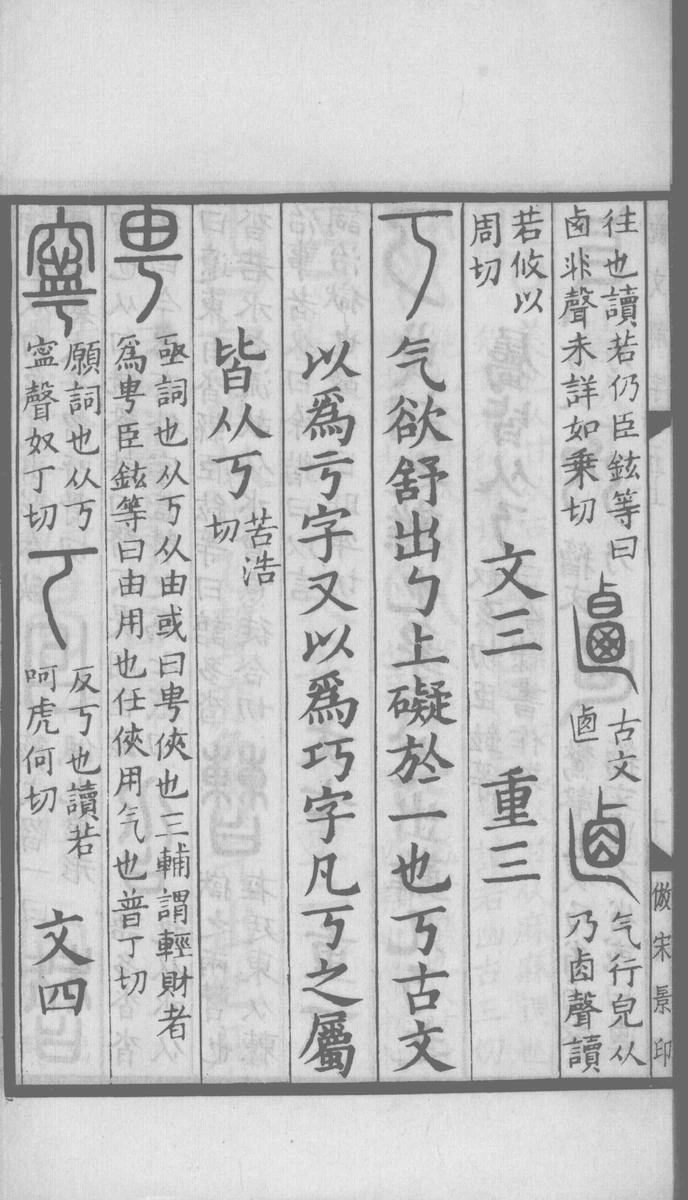 往也讀若仍臣鉉等曰
鹵非聲未詳如乘切
古文
𠧟
气行皃从
乃卤聲讀
若攸以
周切
文三 重三
丂 气欲舒出勹上礙於一也丂古文
以爲亏字又以爲巧字凡丂之屬
皆从丂 苦浩
切
甹 亟詞也从丂从由或曰甹俠也三輔謂輕財者
爲甹臣鉉等曰由用也任俠用气也普丁切
寧 願詞也从丂
寍聲奴丁切
反丂也讀若
呵虎何切
文四
倣宋景印